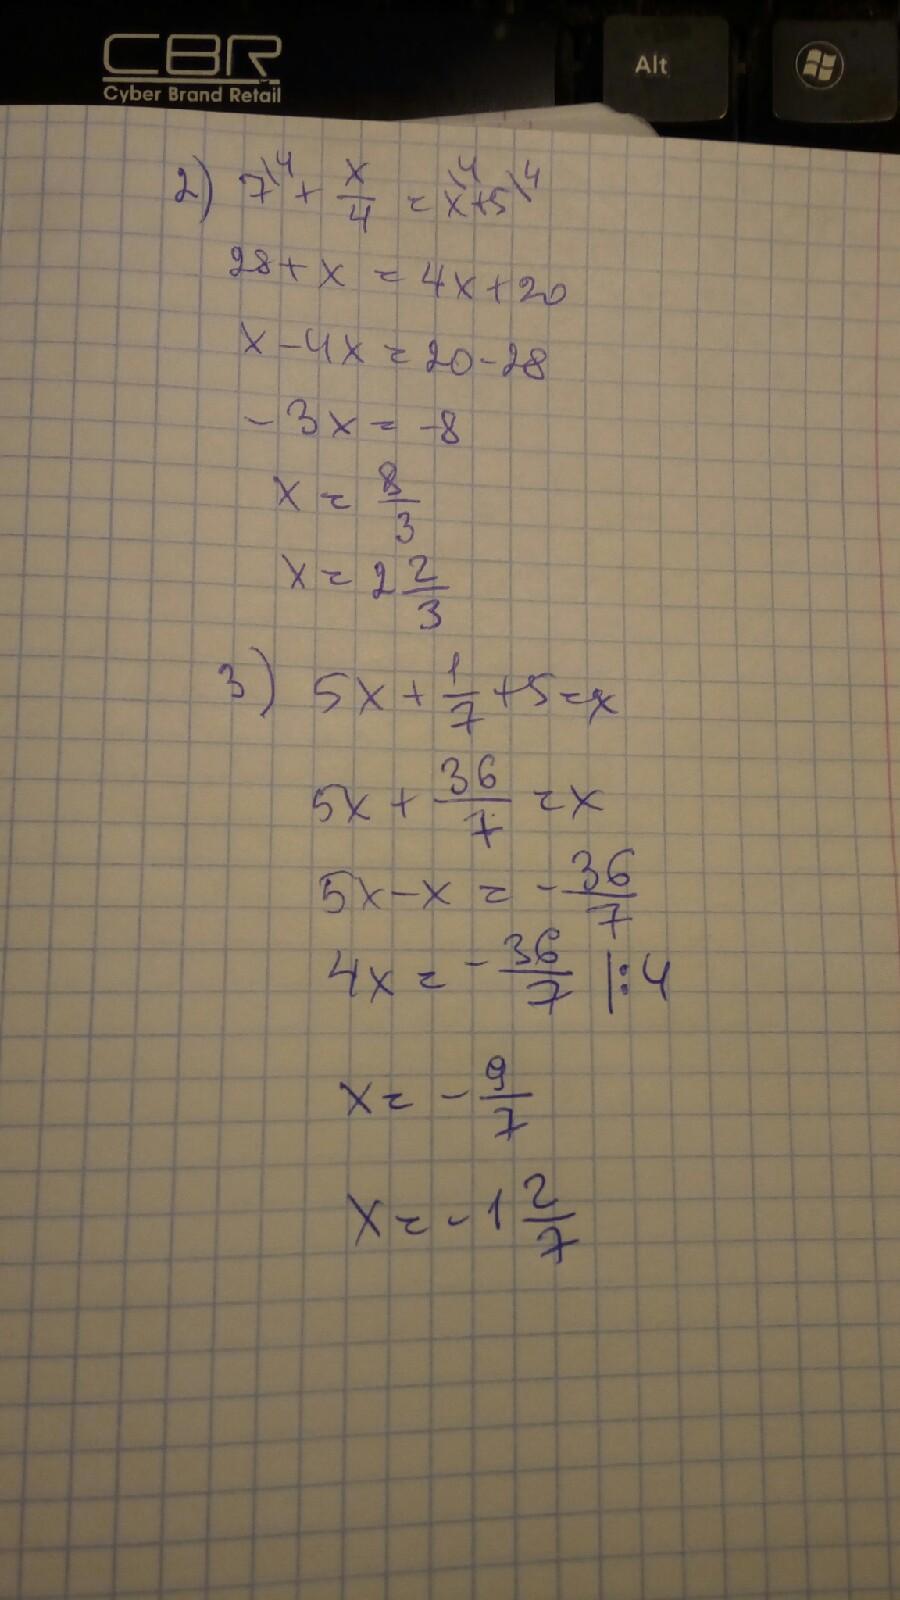 CBR
Cyber Brand Retail
Alt
2) 7\4 + x/4 = x\4 + 5\4
28 + x = 4x + 20
x - 4x = 20 - 28
-3x = -8
x = 8/3
x = 2 2/3
3) 5x + 1/7 + 5 = x
5x + 36/7 = x
5x - x = - 36/7
4x = - 36/7 |:4
x = - 9/7
x = -1 2/7